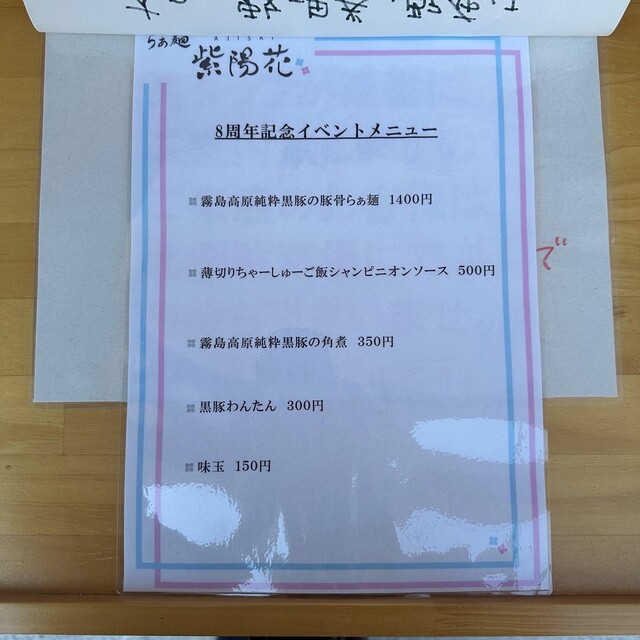 らぁ麺
AJISAI
紫陽花
8周年記念イベントメニュー
霧島高原純粋黒豚の豚骨らぁ麺 1400円
薄切りちゃーしゅーご飯シャンピニオンソース 500円
霧島高原純粋黒豚の角煮 350円
黒豚わんたん 300円
味玉 150円
で